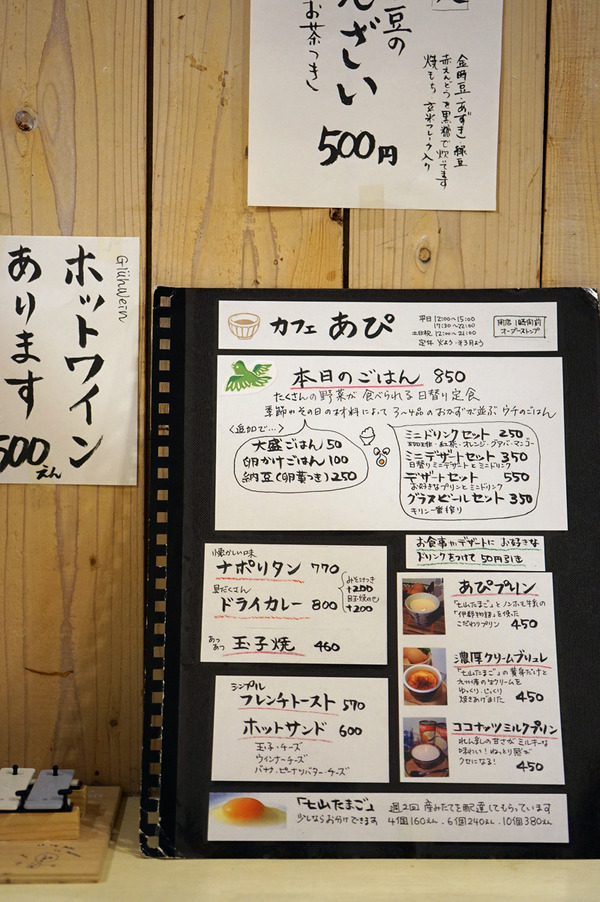 豆の
ざい
お茶つき
500円
金時豆 あずき 緑豆
赤えんどうを黒糖で炊いてます
焼もち 玄米フレーク入り
Glühwein
ホットワイン
あります
500えん
カフェ あぴ
平日 12:00〜15:00
17:30〜22:00
土日祝 12:00〜21:00
定休 火よう・第3月よう
閉店1時間前
オーダーストップ
本日のごはん 850
たくさんの野菜が食べられる日替り定食
季節やその日の材料によって 3〜4品のおかずが並ぶ ウチのごはん
〈追加で…〉
大盛ごはん 50
卵かけごはん 100
納豆(卵黄つき) 250
ミニドリンクセット 250
紅茶・オレンジ・グアバ・マンゴー
ミニデザートセット 350
日替りミニデザートとミニドリンク
デザートセット 550
お好きなプリンとミニドリンク
グラスビールセット 350
キリン一番搾り
お食事やデザートに お好きな
ドリンクをつけて 50円引き
懐かしい味
ナポリタン 770
具だくさん
ドライカレー 800
みそ汁つき
+200
目玉焼のせ
+200
あつあつ
玉子焼 460
シンプル
フレンチトースト 570
ホットサンド 600
玉子・チーズ
ウインナーチーズ
バナナ・ピーナツバター・チーズ
あぴプリン
「七山たまご」とノンホモ牛乳の
「伊都物語」を使った
こだわりプリン 450
濃厚クリームブリュレ
「七山たまご」の黄身だけと
九州産の生クリームを
ゆっくりじっくり
焼きあげました 450
ココナッツミルクプリン
れん乳の甘さがミルキーな
味わい! ねっとり感が
クセになる! 450
「七山たまご」
少しならお分けできます
週2回 産みたてを配達してもらっています
4個160えん . 6個240えん . 10個380えん